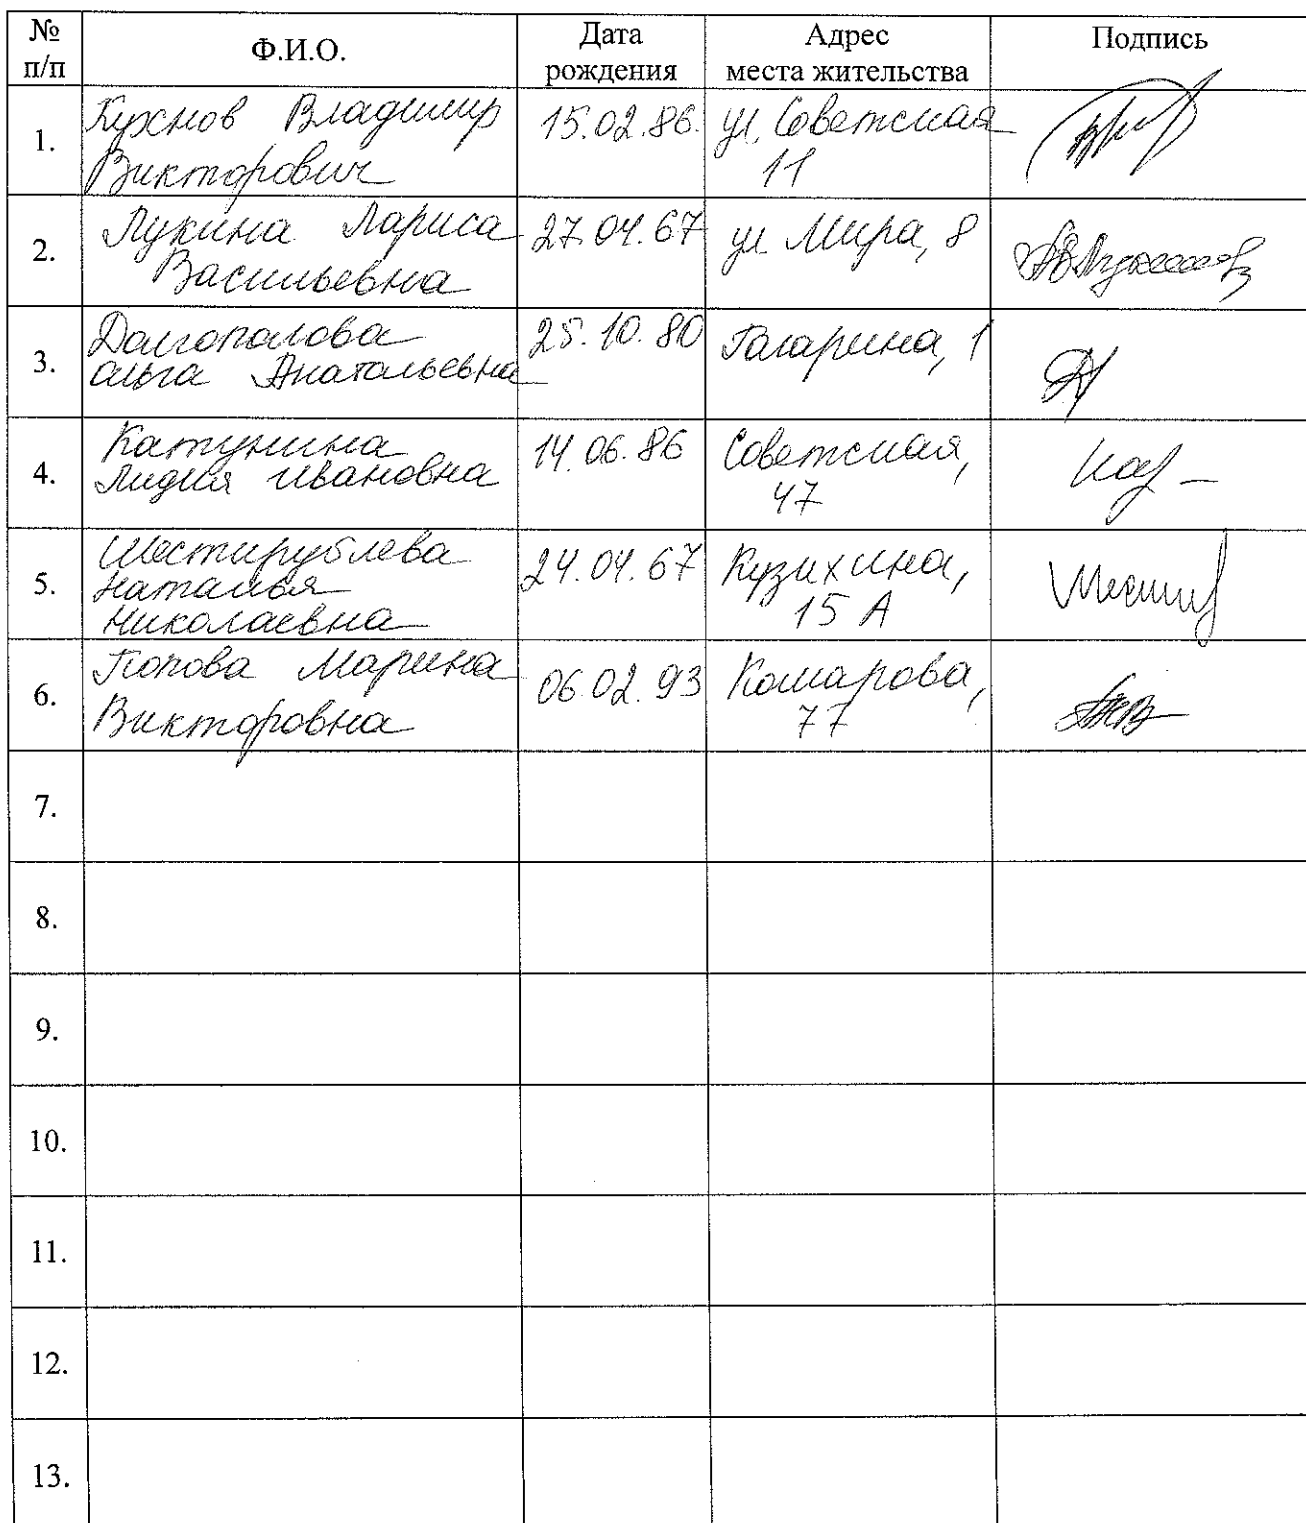 № п/п Ф.И.О. Дата рождения Адрес места жительства Подпись
1. Кухнов Владимир Викторович 15.02.86. ул. Советская 11
2. Лукина Лариса Васильевна 27.04.67 ул Мира, 8
3. Долгополова Ольга Анатольевна 25.10.80 Гагарина, 1
4. Катунина Лидия Ивановна 14.06.86 Советская, 47
5. Шестирублева Наталья Николаевна 24.04.67 Кузихина, 15 А
6. Попова Марина Викторовна 06.02.93 Комарова, 77
7.
8.
9.
10.
11.
12.
13.